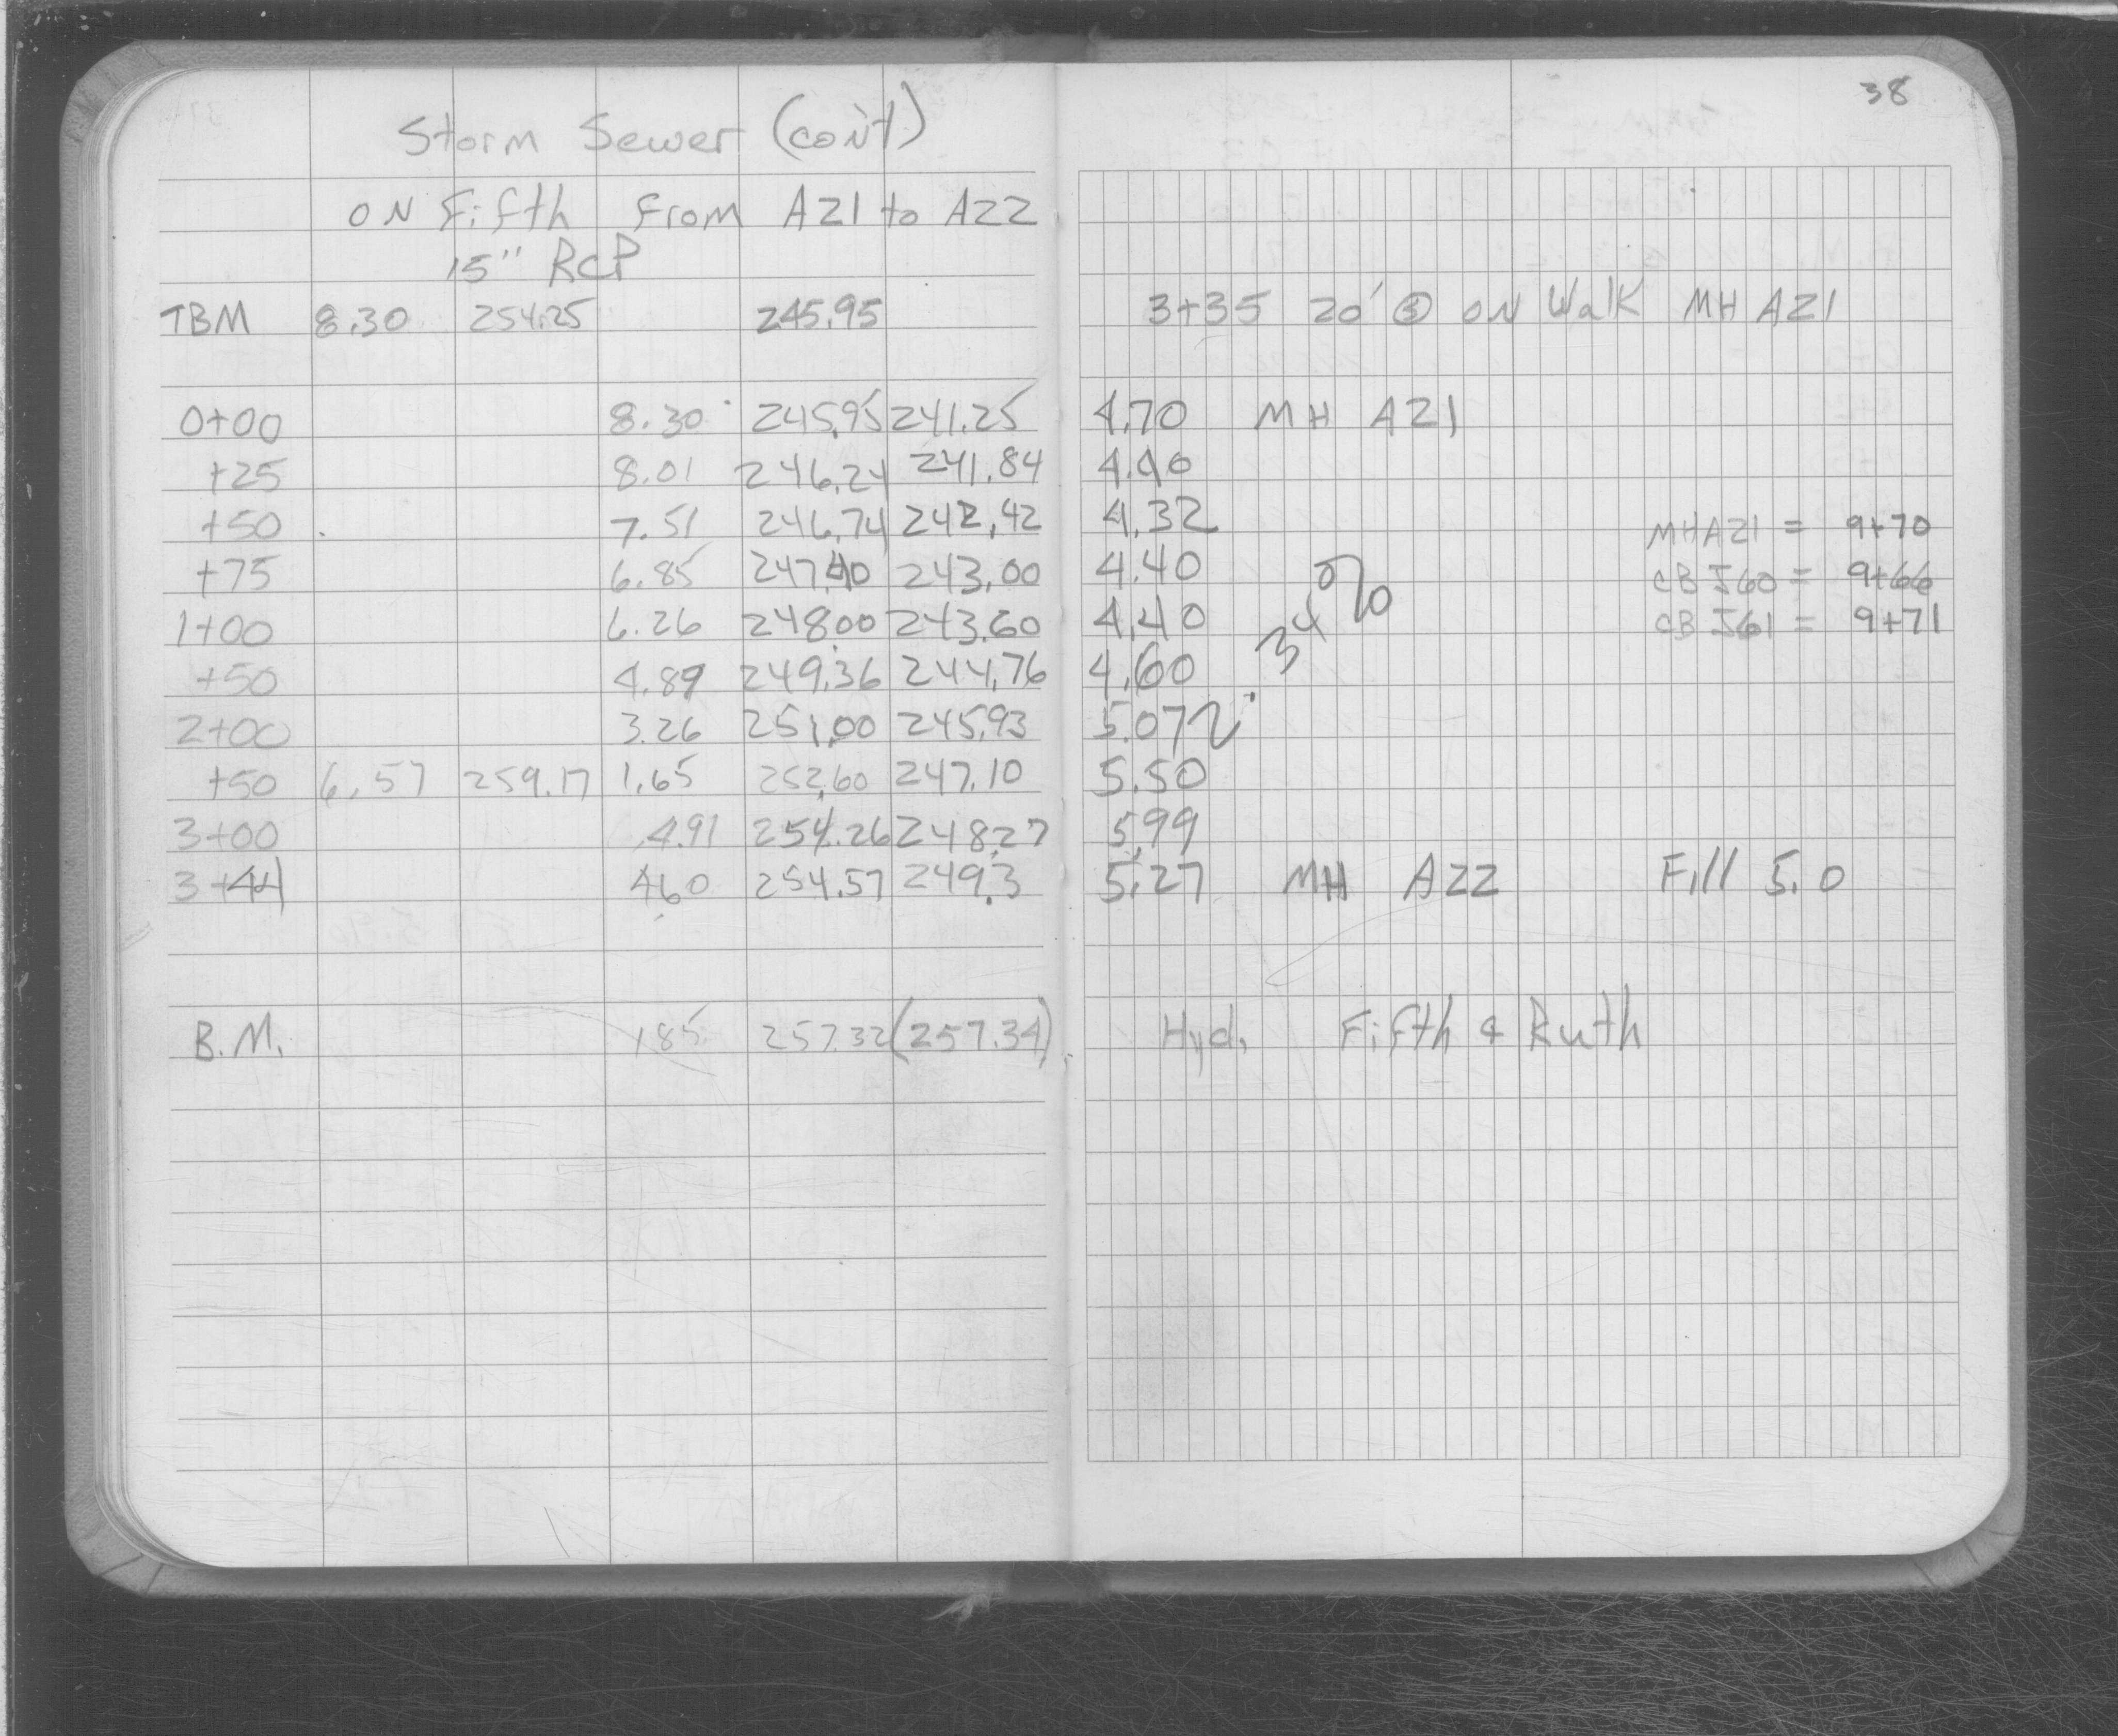 38
Storm Sewer (con't)
ON Fifth From A21 to A22
15" RCP
TBM 8.30 254.25 245.95 3+35 20' ON Walk MH A21
0+00 8.30 245.95 241.25 4.70 MH A21
+25 8.01 246.24 241.84 4.40
+50 7.51 246.74 242.42 4.32 MHA21 = 9+70
+75 6.85 247.40 243.00 4.40 CB J60 = 9+66
1+00 6.26 248.00 243.60 4.40 CB J61 = 9+71
+50 4.89 249.36 244.76 4.60
2+00 3.26 251.00 245.93 5.07 2.34%
+50 6.57 259.17 1.65 252.60 247.10 5.50
3+00 4.91 254.26 248.27 5.99
3+44 4.60 254.57 249.3 5.27 MH A22 Fill 5.0
B.M. 1.85 257.32 (257.34) Hyd. Fifth & Ruth